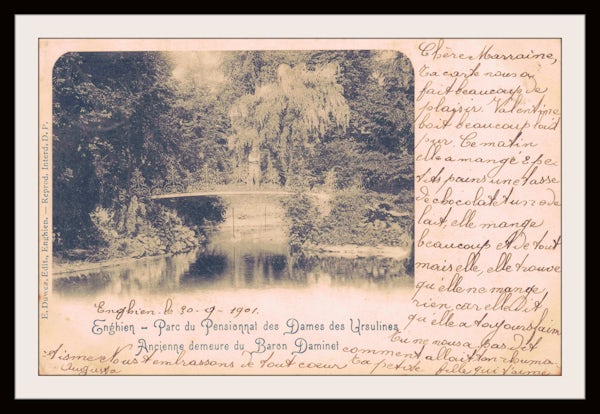 Chère Marraine,
Ta carte nous a
fait beaucoup de
plaisir. Valentine
boit beaucoup lait
pur. Ce matin
elle a mangé 2 pe-
tits pains une tasse
de chocolat un rond
lait, elle mange
beaucoup et de tout
mais elle, elle trouve
qu'elle ne mange
rien, car elle dit
qu'elle a toujours faim
Tu ne nous a pas dit
comment allait ton rhuma
tisme Nous t'embrassons de tout coeur Ta petite fille qui t'aime
Augusta
E. Duwez, Edit., Enghien. — Reprod. Interd. D. P.
Enghien le 30-9-1901.
Enghien - Parc du Pensionnat des Dames des Ursulines
Ancienne demeure du Baron Daminet